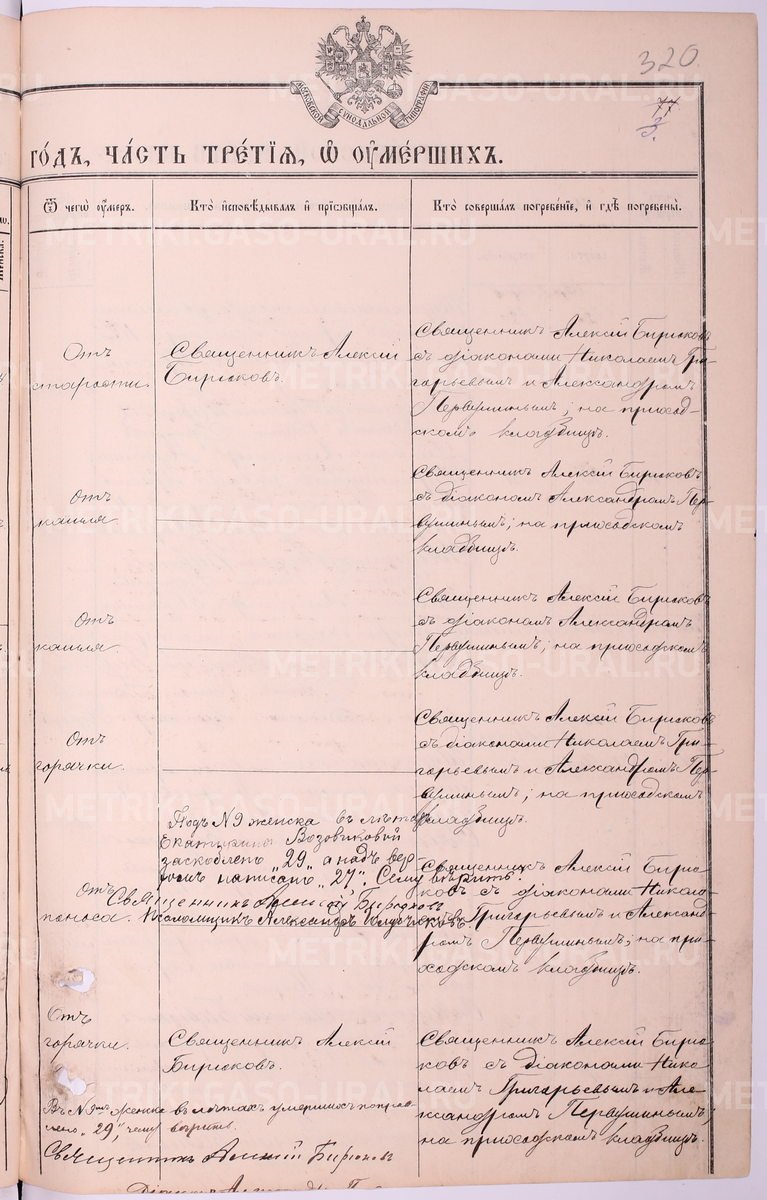 320
77
3.
МОСКОВСКОЙ СѴНОДАЛЬНОЙ ТИПОГРАФІИ
го́дъ, ча́сть тре́тїѧ, ѡ҆ ᲂу҆ме́ршихъ.
Ѿ чегѡ̀ ᲂу҆́меръ.
Кто̀ и҆сповѣ́дывалъ и҆ прїѡбща́лъ.
Кто̀ соверша́лъ погребе́нїе, и҆ гдѣ̀ погребены̀.
Отъ
старости.
Священникъ Алексій
Бирюковъ.
Священникъ Алексій Бирюковъ
съ діаконами Николаемъ Гри-
горьевымъ и Александромъ
Первушинымъ; на приход-
скомъ кладбищѣ.
Отъ
кашля
Священникъ Алексій Бирюковъ
съ діакономъ Александромъ Пер-
вушинымъ; на приходскомъ
кладбищѣ.
Отъ
кашля.
Священникъ Алексій Бирюковъ
съ діакономъ Александромъ
Первушинымъ; на приходскомъ
кладбищѣ.
Отъ
горячки.
Священникъ Алексій Бирюковъ
съ діаконами Николаемъ Гри-
горьевымъ и Александромъ Пер-
вушинымъ; на приходскомъ
кладбищѣ.
Подъ N 9 женска въ лѣтахъ
Екатерина Возовиковой
заскоблено "29" а надъ вер-
хомъ написано "27" Сему вѣрить.
Священникъ Алексій Бирюковъ
Псаломщикъ Александръ
отъ
поноса.
Священникъ Алексій Бирю-
ковъ съ діаконами Никола-
емъ Григорьевымъ и Александ-
ромъ Первушинымъ; на при-
ходскомъ кладбищѣ.
Отъ
горячки.
Священникъ Алексій
Бирюковъ.
Священникъ Алексій Бирю-
ковъ съ діаконами Нико-
лаемъ Григорьевымъ и Але-
ксандромъ Первушинымъ;
на приходскомъ кладбищѣ.
Въ N 9мъ женска въ лѣтахъ умершихъ поправ-
лено "29", чему вѣрить.
Священникъ Алексій Бирюковъ
METRIKI.GASO-URAL.RU